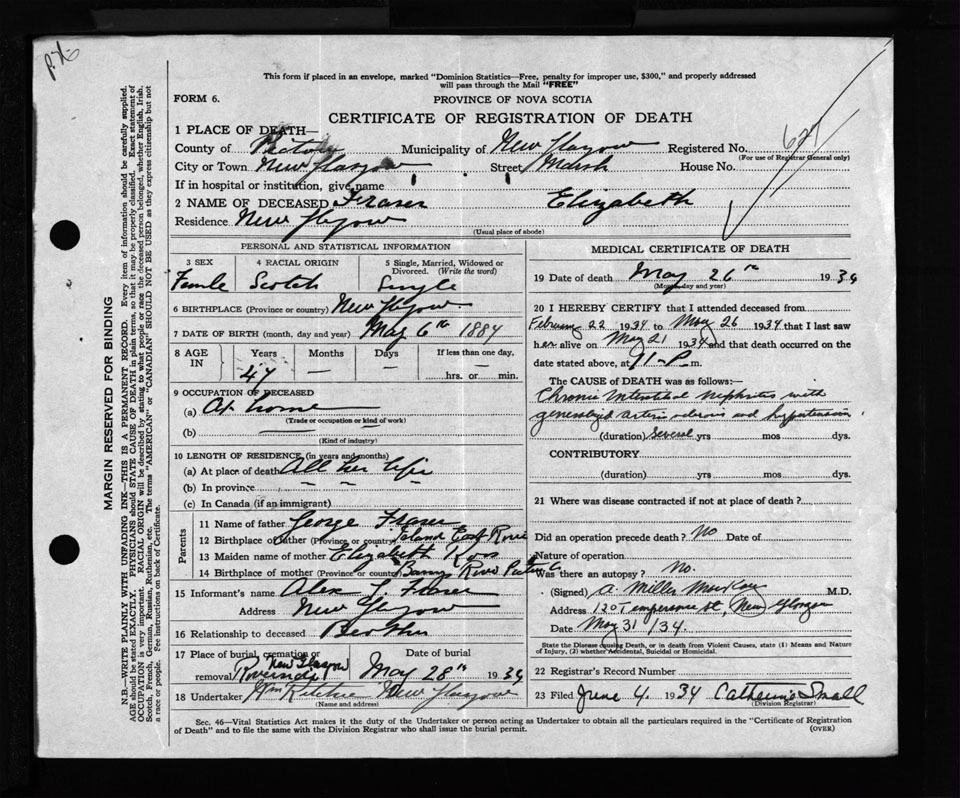 This form if placed in an envelope, marked "Dominion Statistics—Free, penalty for improper use, $300," and properly addressed
will pass through the Mail "FREE"
FORM 6.
PROVINCE OF NOVA SCOTIA
CERTIFICATE OF REGISTRATION OF DEATH
627
1 PLACE OF DEATH—
County of Pictou Municipality of New Glasgow Registered No.
(For use of Registrar General only)
City or Town New Glasgow Street Marsh House No.
If in hospital or institution, give name
2 NAME OF DECEASED Fraser Elizabeth
Residence New Glasgow
(Usual place of abode)
PERSONAL AND STATISTICAL INFORMATION
3 SEX 4 RACIAL ORIGIN 5 Single, Married, Widowed or Divorced. (Write the word)
Female Scotch Single
6 BIRTHPLACE (Province or country) New Glasgow
7 DATE OF BIRTH (month, day and year) May 6th 1884
8 AGE IN Years Months Days If less than one day,
47 — — — hrs. or min.
9 OCCUPATION OF DECEASED
(a) At home
(Trade or occupation or kind of work)
(b)
(Kind of industry)
10 LENGTH OF RESIDENCE (in years and months)
(a) At place of death All her life
(b) In province
(c) In Canada (if an immigrant)
Parents
11 Name of father George Fraser
12 Birthplace of father (Province or country) Island East River
13 Maiden name of mother Elizabeth Ross
14 Birthplace of mother (Province or country) River Pictou C.
15 Informant's name Alex Fraser
Address New Glasgow
16 Relationship to deceased Brother
17 Place of burial, cremation or removal Date of burial
New Glasgow
Riverside May 28th 1934
18 Undertaker Wm Ritchie New Glasgow
(Name and address)
MEDICAL CERTIFICATE OF DEATH
19 Date of death May 26th 1934
(Month, day and year)
20 I HEREBY CERTIFY that I attended deceased from
February 22 1934 to May 26 1934 that I last saw
her alive on May 21 1934 and that death occurred on the
date stated above, at 11-P. m.
The CAUSE OF DEATH was as follows:—
Chronic Interstitial Nephritis with
generalized arterio sclerosis and hypertension
(duration) Several yrs mos dys.
CONTRIBUTORY
(duration) yrs. mos. dys.
21 Where was disease contracted if not at place of death?
Did an operation precede death? No Date of
Nature of operation
Was there an autopsy? No.
(Signed) A. Miller MacKay M.D.
Address 120 Temperance St, New Glasgow
Date May 31/34.
State the Disease causing Death, or in death from Violent Causes, state (1) Means and Nature of Injury, (2) whether Accidental, Suicidal or Homicidal.
22 Registrar's Record Number
23 Filed June 4. 1934 Catherine Small
(Division Registrar)
Sec. 46—Vital Statistics Act makes it the duty of the Undertaker or person acting as Undertaker to obtain all the particulars required in the "Certificate of Registration
of Death" and to file the same with the Division Registrar who shall issue the burial permit.
(OVER)
MARGIN RESERVED FOR BINDING
N.B.—WRITE PLAINLY WITH UNFADING INK—THIS IS A PERMANENT RECORD. Every item of information should be carefully supplied.
AGE should be stated EXACTLY. PHYSICIANS should STATE CAUSE OF DEATH in plain terms, so that it may be properly classified. Exact statement of
OCCUPATION is very important. RACIAL ORIGIN will be described by stating to what people or race the deceased person belonged, whether English, Irish,
Scotch, French, German, Russian, Ruthenian, etc. The terms "AMERICAN" or "CANADIAN" SHOULD NOT BE USED as they express citizenship but not
a race or people. See instructions on back of Certificate.